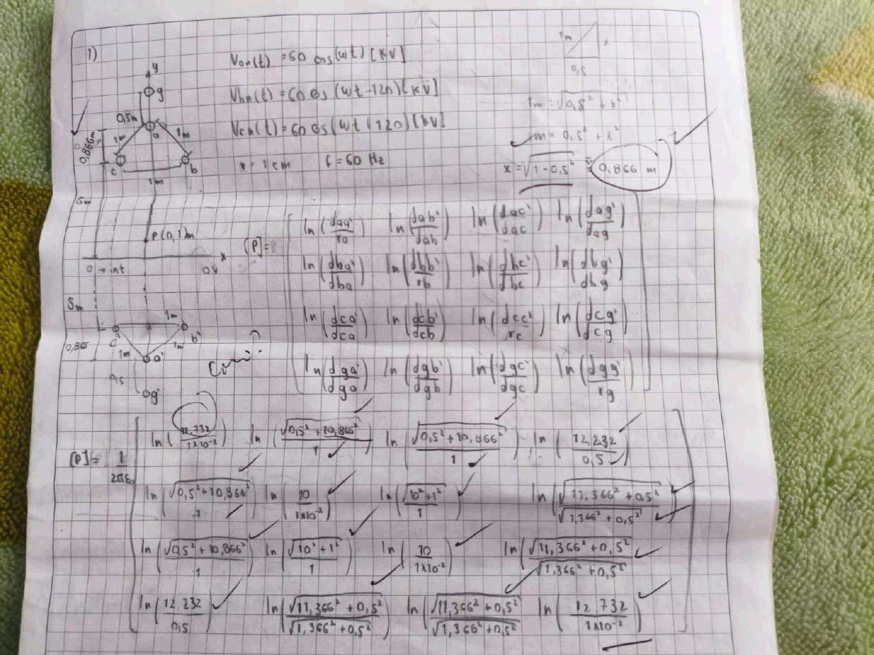 1)
Van(t) = 60 cos(wt) [KV]
Vbn(t) = 60 cos (wt-120) [KV]
Vcn(t) = 60 cos (wt+120) [KV]
r = 1 cm f = 60 Hz
1m x
0,5
1m = √0,5² + x²
1m = 0,5² + x²
x = √1-0,5² = 0,866 m
y
g
0,5m
a
0,866m
1m 1m
c b
1m
5m
P(0,1)m
x
5m
1m
c' b'
0,866
1m 1m
a'
0,5
g'
[P]=
ln(daa'/ra) ln(dab'/dab) ln(dac'/dac) ln(dag'/dag)
ln(dba'/dba) ln(dbb'/rb) ln(dbc'/dbc) ln(dbg'/dbg)
ln(dca'/dca) ln(dcb'/dcb) ln(dcc'/rc) ln(dcg'/dcg)
ln(dga'/dga) ln(dgb'/dgb) ln(dgc'/dgc) ln(dgg'/rg)
[P]= 1/2πε.
ln(11,732/1x10⁻²) ln(√0,5²+10,866²/1) ln(√0,5²+10,866²/1) ln(12,232/0,5)
ln(√0,5²+10,866²/1) ln(10/1x10⁻²) ln(√10²+1²/1) ln(√11,366²+0,5²/√1,366²+0,5²)
ln(√0,5²+10,866²/1) ln(√10²+1²/1) ln(10/1x10⁻²) ln(√11,366²+0,5²/√1,366²+0,5²)
ln(12,232/0,5) ln(√11,366²+0,5²/√1,366²+0,5²) ln(√11,366²+0,5²/√1,366²+0,5²) ln(12,732/1x10⁻²)